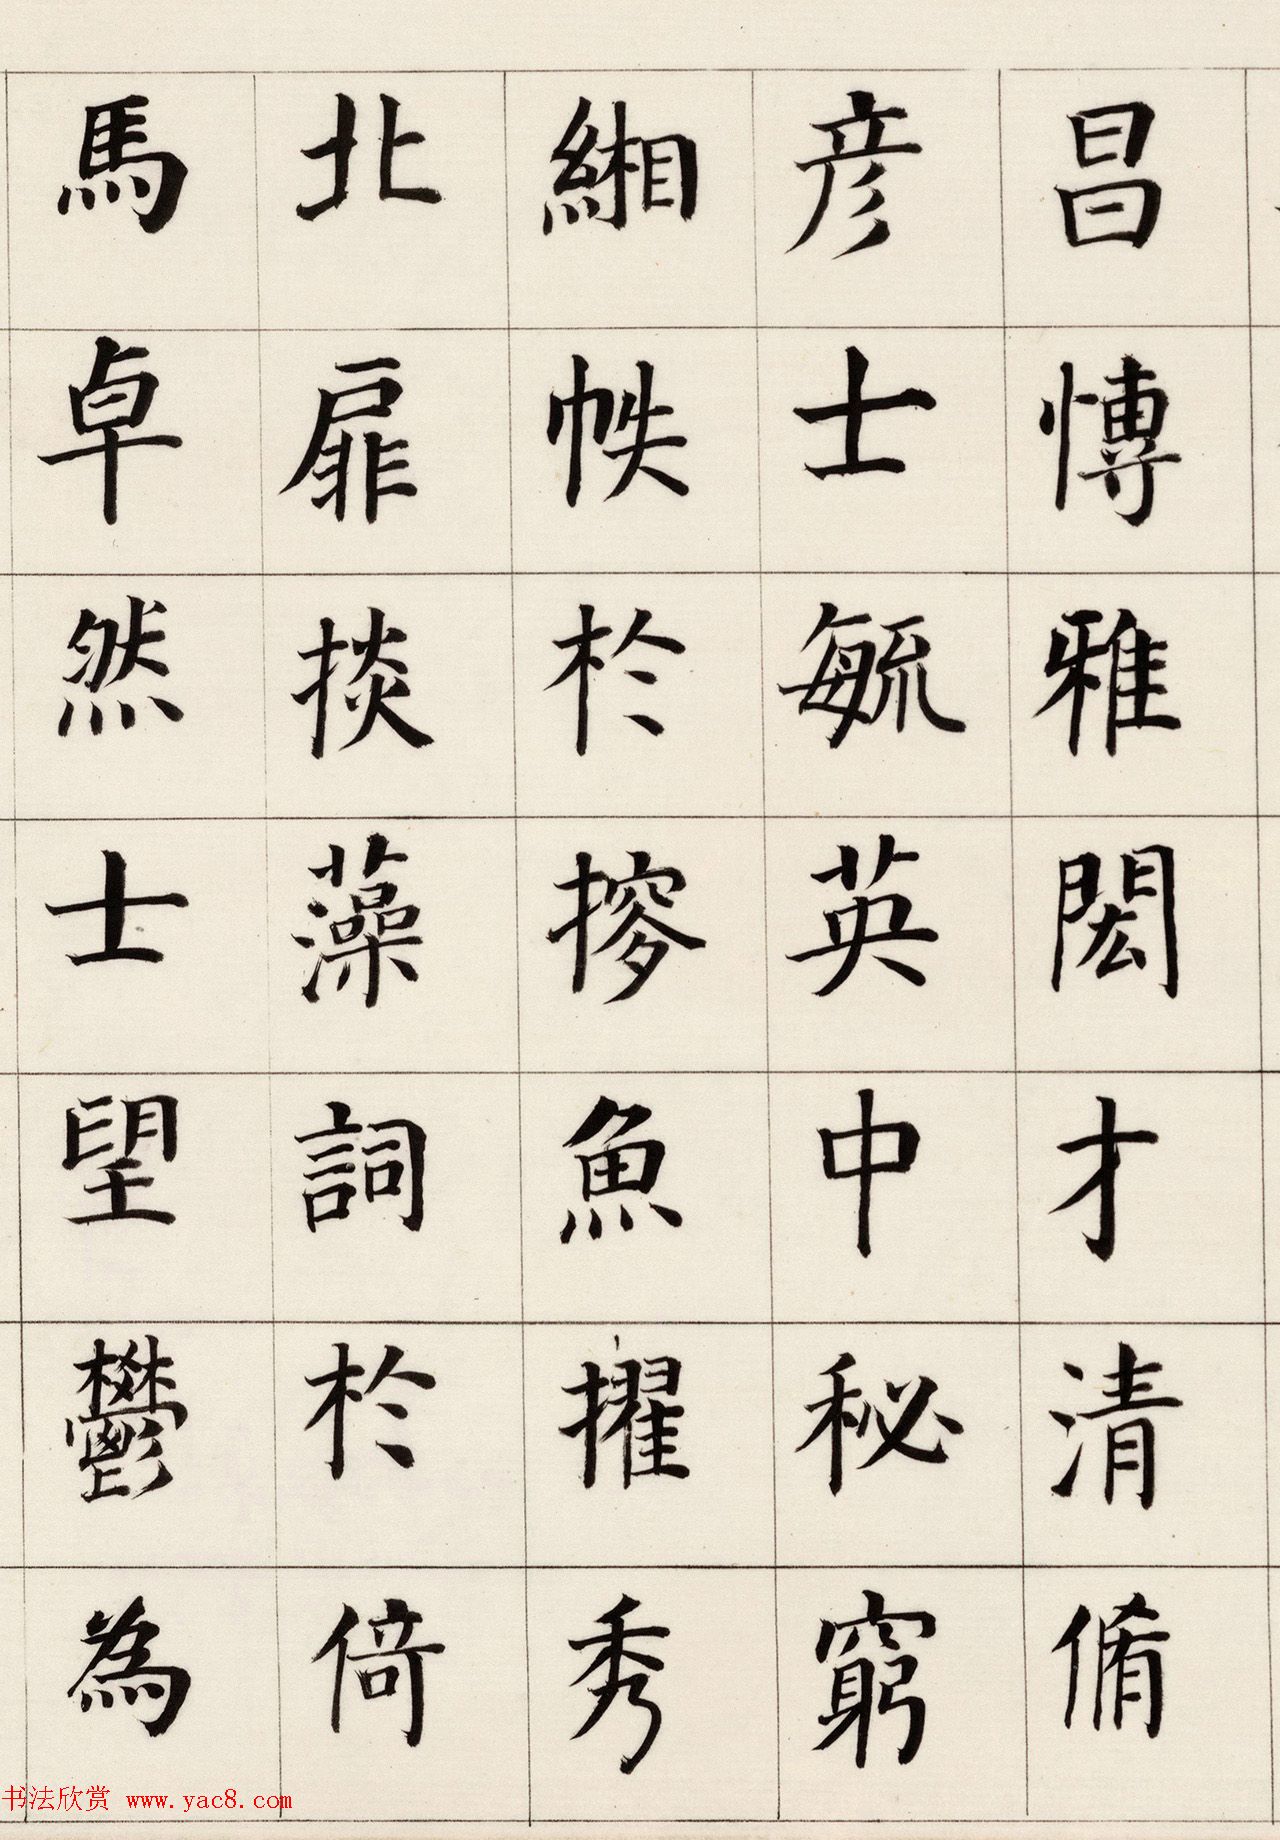 昌博雅閎才清脩
彥士毓英中秘窮
緗帙於魚擢秀
北扉掞藻詞於倚
馬卓然士望鬱為
书法欣赏 www.yac8.com